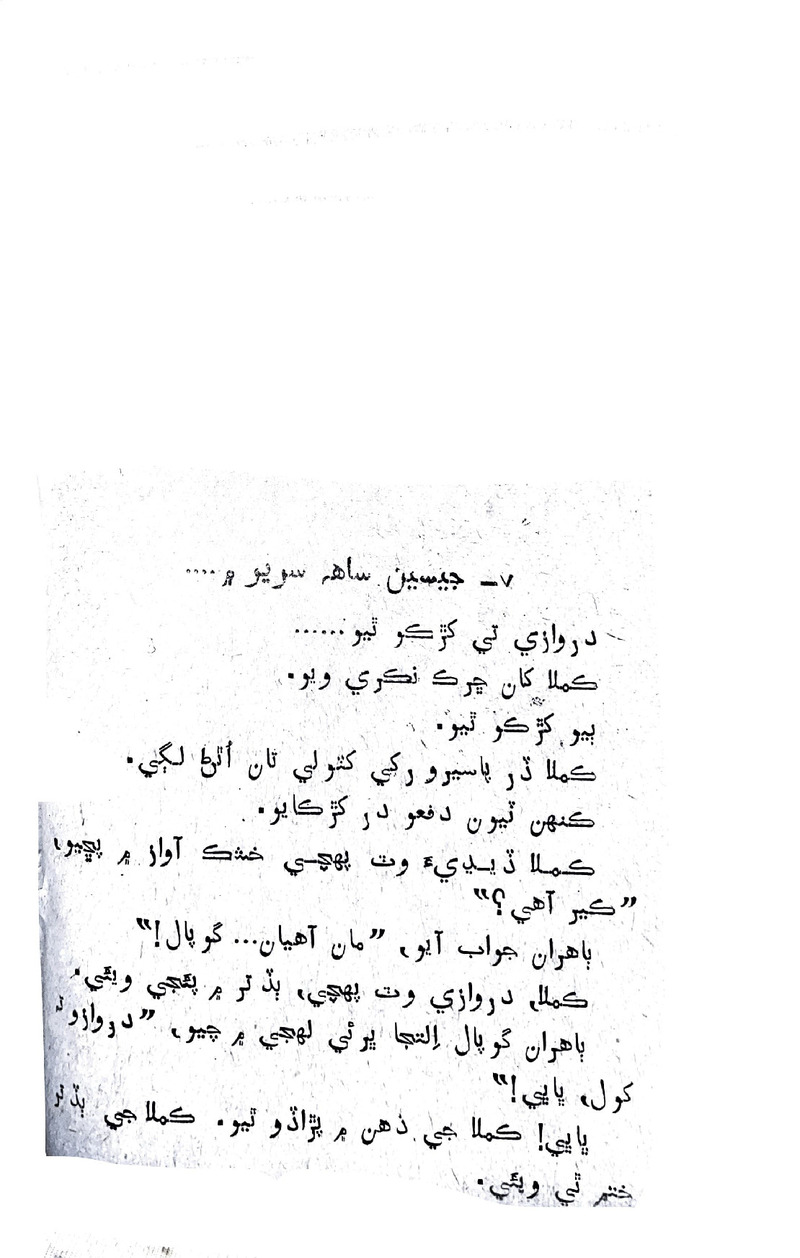 ۷ـ جيسين ساهہ سريو ۾....
دروازي تي کڙڪو ٿيو......
ڪملا کان ڇرڪ نڪري ويو.
ٻيو کڙڪو ٿيو.
ڪملا ڏر پاسيرو رکي کٽولي تان اُٿڻ لڳي.
ڪنهن ٽيون دفعو در کڙڪايو.
ڪملا ڏيڍيءَ وٽ پهچي خشڪ آواز ۾ پڇيو،
”ڪير آهي؟“
ٻاهران جواب آيو، ”مان آهيان... گوپال!“
ڪملا، دروازي وٽ پهچي، ٻڏتر ۾ پئجي ويئي.
ٻاهران گوپال اِلتجا ڀرئي لهجي ۾ چيو، ”دروازو ته
کول، ڀاڀي!“
ڀاڀي! ڪملا جي ذهن ۾ پڙاڏو ٿيو. ڪملا جي ٻڏتر
ختم ٿي ويئي.